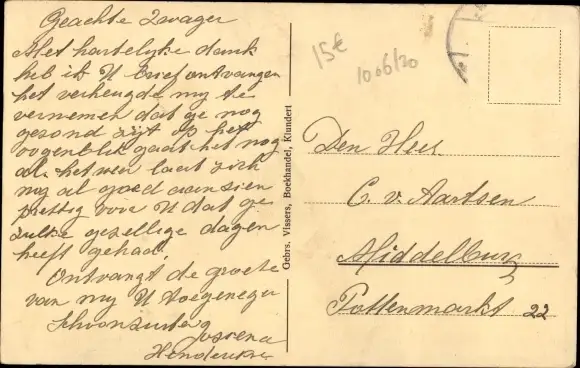 Geachte Zwager
Met hartelijke dank
heb ik U brief ontvangen
het verheugde my te
vernemen dat ge nog
gezond zijt op het
oogenblik gaat het nog
al. het weer laat zich
nog al goed aanzien
prettig voor U dat ge
zulke gezellige dagen
heeft gehad.
Ontvangt de groete
van my U toegenegen
Schoonzuster
Hendrikse
Gebrs. Vissers, Boekhandel, Klundert
15€
1006/20
Den Heer
C. v. Aartsen
Middelburg
Pottenmarkt 22